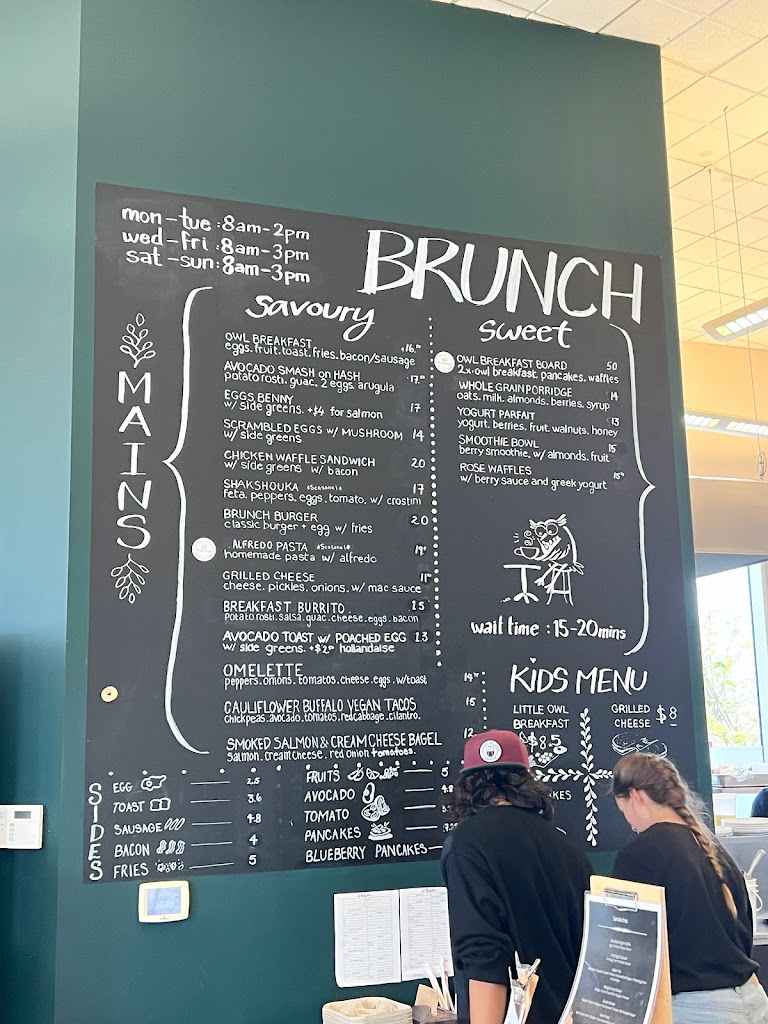 mon-tue: 8am-2pm
wed-fri: 8am-3pm
sat-sun: 8am-3pm
BRUNCH
MAINS
savoury
OWL BREAKFAST
eggs. fruit. toast. fries. bacon/sausage
AVOCADO SMASH on HASH
potato rosti, guac, 2 eggs. arugula
EGGS BENNY 17
w/ side greens. +$4 for salmon
SCRAMBLED EGGS w/ MUSHROOM 14
w/ side greens
CHICKEN WAFFLE SANDWICH 20
w/ side greens w/ bacon
SHAKSHOUKA *Seasonal* 17
feta. peppers. eggs. tomato. w/ crostini
BRUNCH BURGER 20
classic burger + egg w/ fries
ALFREDO PASTA
homemade pasta w/ alfredo
GRILLED CHEESE
cheese. pickles. onions. w/ mac sauce
BREAKFAST BURRITO 15
Potato rosti. salsa. guac. cheese. eggs. bacon
AVOCADO TOAST w/ POACHED EGG 13
w/ side greens. hollandaise
OMELETTE
peppers. onions. tomatos. cheese. eggs. w/toast
CAULIFLOWER BUFFALO VEGAN TACOS 15
chickpeas. avocado. tomatos. red cabbage. cilantro.
SMOKED SALMON & CREAM CHEESE BAGEL 12
Salmon. cream cheese. red onion tomatoes.
sweet
OWL BREAKFAST BOARD 50
2x owl breakfast. pancakes. waffles
WHOLE GRAIN PORRIDGE 14
oats. milk. almonds. berries. syrup
YOGURT PARFAIT 13
yogurt. berries. fruit. walnuts. honey
SMOOTHIE BOWL 15
berry smoothie, w/ almonds. fruit
ROSE WAFFLES
w/ berry sauce and greek yogurt
wait time: 15-20mins
KIDS MENU
LITTLE OWL
BREAKFAST
$8.5
GRILLED
CHEESE $8
SIDES
EGG 2.5
TOAST 3.6
SAUSAGE 4.8
BACON 4
FRIES 5
FRUITS 5
AVOCADO
TOMATO
PANCAKES
BLUEBERRY PANCAKES
Sandwiches